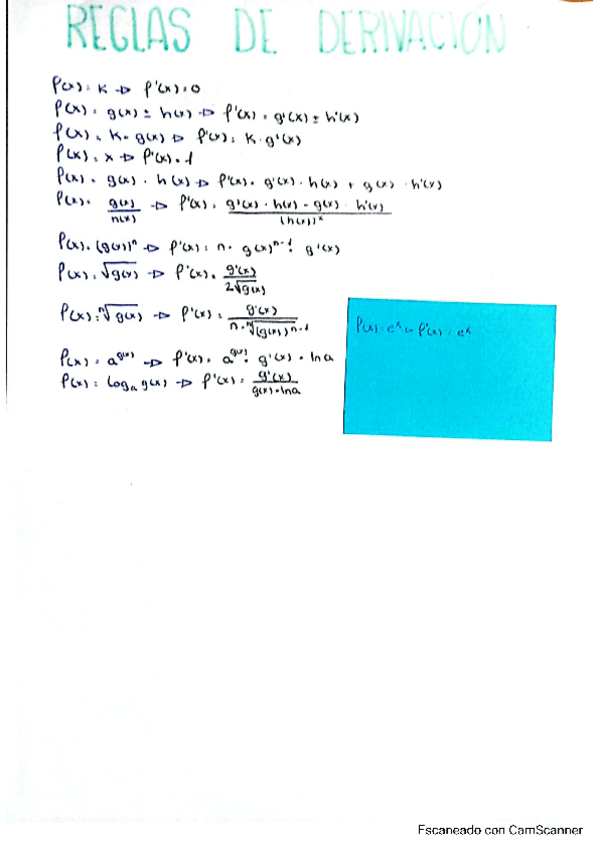 REGLAS DE DERIVACIÓN
f(x) = K → f'(x) = 0
f(x) = g(x) ± h(x) → f'(x) = g'(x) ± h'(x)
f(x) = K · g(x) → f'(x) = K · g'(x)
f(x) = x → f'(x) = 1
f(x) = g(x) · h(x) → f'(x) = g'(x) · h(x) + g(x) · h'(x)
f(x) = g(x)/h(x) → f'(x) = (g'(x) · h(x) - g(x) · h'(x))/(h(x))²
f(x) = (g(x))ⁿ → f'(x) = n · g(x)ⁿ⁻¹ · g'(x)
f(x) = √g(x) → f'(x) = g'(x)/2√g(x)
f(x) = ⁿ√g(x) → f'(x) = g'(x)/n · ⁿ√(g(x))ⁿ⁻¹
f(x) = eˣ → f'(x) = eˣ
f(x) = a^g(x) → f'(x) = a^g(x) · g'(x) · ln a
f(x) = logₐ g(x) → f'(x) = g'(x)/g(x) · ln a
Escaneado con CamScanner